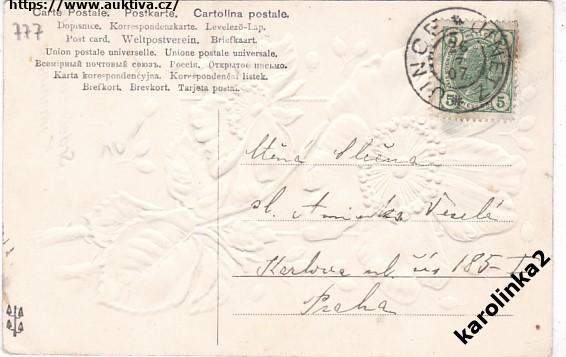 https://www.auktiva.cz/
Carte Postale. Postkarte. Cartolina postale.
777
Dopisnice. Korrespondenzkarte. Levelező-Lap.
Post card. Weltpostverein. Briefkaart.
Union postale universelle. Unione postale universale.
Всемірный почтовый союзъ. Россія. Открытое письмо.
Karta korespondencyjna. Korrespondenční lístek.
Brefkort. Brevkort. Tarjeta postal.
JINCE
07
5 5
Ctěná Slečna
sl. Veselé
Karlova ul. čís 185-I
Praha
karolinka2